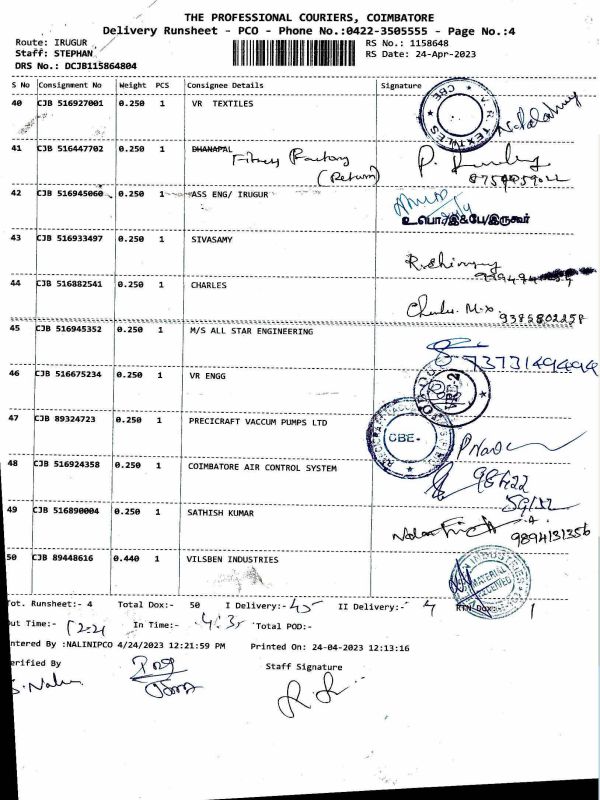 THE PROFESSIONAL COURIERS, COIMBATORE
Delivery Runsheet - PCO - Phone No.:0422-3505555 - Page No.:4
Route: IRUGUR RS No.: 1158648
Staff: STEPHAN RS Date: 24-Apr-2023
DRS No.: DCJB115864804
S No Consignment No Weight PCS Consignee Details Signature
40 CJB 516927001 0.250 1 VR TEXTILES
41 CJB 516447702 0.250 1 DHANAPAL
Fitness Factory
(Return)
42 CJB 516945060 0.250 1 ASS ENG/ IRUGUR
உ.பொ/இ&பே/இருகூர்
43 CJB 516933497 0.250 1 SIVASAMY
44 CJB 516882541 0.250 1 CHARLES
Charles. M 9385802258
45 CJB 516945352 0.250 1 M/S ALL STAR ENGINEERING
7373149494
46 CJB 516675234 0.250 1 VR ENGG
47 CJB 89324723 0.250 1 PRECICRAFT VACCUM PUMPS LTD
CBE-
48 CJB 516924358 0.250 1 COIMBATORE AIR CONTROL SYSTEM
49 CJB 516890004 0.250 1 SATHISH KUMAR
9894131356
50 CJB 89448616 0.440 1 VILSBEN INDUSTRIES
MATERIAL RECEIVED
Tot. Runsheet:- 4 Total Dox:- 50 I Delivery:- 45 II Delivery:- 4 RTN Dox:- 1
Out Time:- 12.21 In Time:- 4.35 Total POD:-
Entered By :NALINIPCO 4/24/2023 12:21:59 PM Printed On: 24-04-2023 12:13:16
Verified By Staff Signature